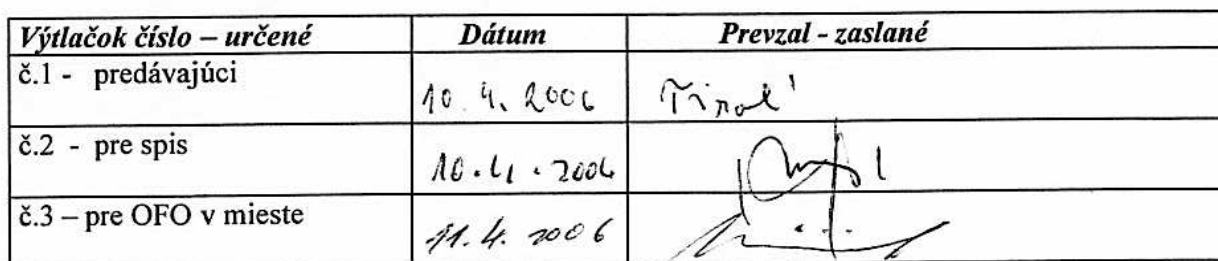 Výtlačok číslo – určené Dátum Prevzal - zaslané
č.1 - predávajúci 10. 4. 2006
č.2 - pre spis 10. 4. 2006
č.3 – pre OFO v mieste 11. 4. 2006